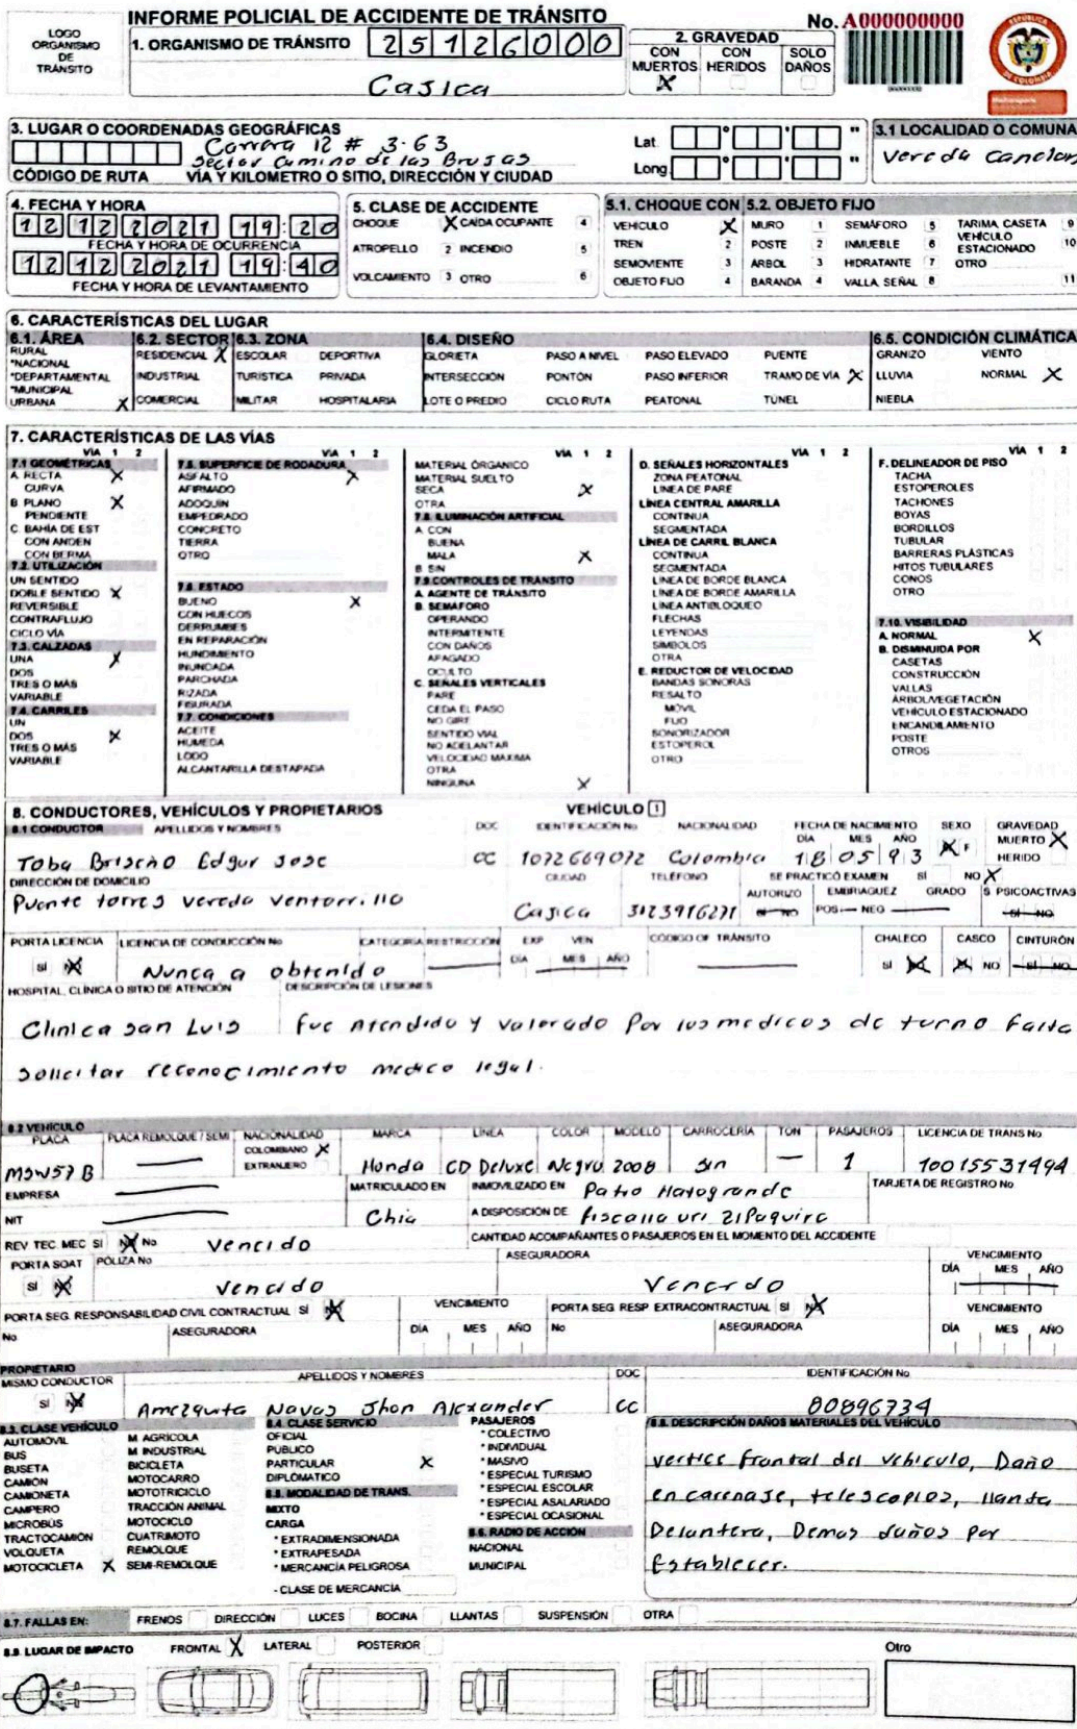 LOGO
ORGANISMO
DE
TRÁNSITO
INFORME POLICIAL DE ACCIDENTE DE TRÁNSITO
No. A000000000
1. ORGANISMO DE TRÁNSITO 25126000
Cajica
2. GRAVEDAD
CON MUERTOS X CON HERIDOS SOLO DAÑOS
REPÚBLICA DE COLOMBIA
3. LUGAR O COORDENADAS GEOGRÁFICAS
Carrera 12 # 3-63
Sector Camino de las Brujas
CÓDIGO DE RUTA VÍA Y KILOMETRO O SITIO, DIRECCIÓN Y CIUDAD
Lat. ° ' "
Long. ° ' "
3.1 LOCALIDAD O COMUNA
Vereda Canelon
4. FECHA Y HORA
12 12 2021 19:20
FECHA Y HORA DE OCURRENCIA
12 12 2021 19:40
FECHA Y HORA DE LEVANTAMIENTO
5. CLASE DE ACCIDENTE
CHOQUE X CAÍDA OCUPANTE 4
ATROPELLO 2 INCENDIO 5
VOLCAMIENTO 3 OTRO 6
5.1. CHOQUE CON
VEHICULO X
TREN 2
SEMOVIENTE 3
OBJETO FIJO 4
5.2. OBJETO FIJO
MURO 1 SEMÁFORO 5 TARIMA, CASETA 9
POSTE 2 INMUEBLE 6 VEHÍCULO ESTACIONADO 10
ARBOL 3 HIDRATANTE 7 OTRO
BARANDA 4 VALLA, SEÑAL 8 11
6. CARACTERÍSTICAS DEL LUGAR
6.1. ÁREA
RURAL
*NACIONAL
*DEPARTAMENTAL
*MUNICIPAL
URBANA X
6.2. SECTOR
RESIDENCIAL X
INDUSTRIAL
COMERCIAL
6.3. ZONA
ESCOLAR DEPORTIVA
TURISTICA PRIVADA
MILITAR HOSPITALARIA
6.4. DISEÑO
GLORIETA PASO A NIVEL PASO ELEVADO PUENTE
INTERSECCIÓN PONTÓN PASO INFERIOR TRAMO DE VÍA X
LOTE O PREDIO CICLO RUTA PEATONAL TUNEL
6.5. CONDICIÓN CLIMÁTICA
GRANIZO VIENTO
LLUVIA NORMAL X
NIEBLA
7. CARACTERÍSTICAS DE LAS VÍAS
VIA 1 2
7.1 GEOMÉTRICAS
A. RECTA X
CURVA
B. PLANO X
PENDIENTE
C. BAHÍA DE EST
CON ANDEN
CON BERMA
7.2. UTILIZACIÓN
UN SENTIDO
DOBLE SENTIDO X
REVERSIBLE
CONTRAFLUJO
CICLO VÍA
7.3. CALZADAS
UNA X
DOS
TRES O MÁS
VARIABLE
7.4. CARRILES
UN
DOS X
TRES O MÁS
VARIABLE
VIA 1 2
7.5. SUPERFICIE DE RODADURA
ASFALTO X
AFIRMADO
ADOQUIN
EMPEDRADO
CONCRETO
TIERRA
OTRO
7.6. ESTADO
BUENO X
CON HUECOS
DERRUMBES
EN REPARACIÓN
HUNDIMIENTO
INUNDADA
PARCHADA
RIZADA
FISURADA
7.7. CONDICIONES
ACEITE
HUMEDA
LODO
ALCANTARILLA DESTAPADA
VIA 1 2
MATERIAL ÓRGANICO
MATERIAL SUELTO
SECA X
OTRA
7.8. ILUMINACIÓN ARTIFICIAL
A. CON
BUENA
MALA X
B. SIN
7.9 CONTROLES DE TRÁNSITO
A. AGENTE DE TRÁNSITO
B. SEMAFORO
OPERANDO
INTERMITENTE
CON DAÑOS
APAGADO
OCULTO
C. SEÑALES VERTICALES
PARE
CEDA EL PASO
NO GIRE
SENTIDO VIAL
NO ADELANTAR
VELOCIDAD MAXIMA
OTRA
NINGUNA X
VIA 1 2
D. SEÑALES HORIZONTALES
ZONA PEATONAL
LINEA DE PARE
LINEA CENTRAL AMARILLA
CONTINUA
SEGMENTADA
LÍNEA DE CARRIL BLANCA
CONTINUA
SEGMENTADA
LINEA DE BORDE BLANCA
LINEA DE BORDE AMARILLA
LINEA ANTIBLOQUEO
FLECHAS
LEYENDAS
SIMBOLOS
OTRA
E. REDUCTOR DE VELOCIDAD
BANDAS SONORAS
RESALTO
MOVIL
FIJO
SONORIZADOR
ESTOPEROL
OTRO
VIA 1 2
F. DELINEADOR DE PISO
TACHA
ESTOPEROLES
TACHONES
BOYAS
BORDILLOS
TUBULAR
BARRERAS PLÁSTICAS
HITOS TUBULARES
CONOS
OTRO
7.10. VISIBILIDAD
A. NORMAL X
B. DISMINUIDA POR
CASETAS
CONSTRUCCIÓN
VALLAS
ÁRBOL/VEGETACIÓN
VEHÍCULO ESTACIONADO
ENCANDILAMIENTO
POSTE
OTROS
8. CONDUCTORES, VEHÍCULOS Y PROPIETARIOS VEHÍCULO 1
8.1 CONDUCTOR APELLIDOS Y NOMBRES DOC IDENTIFICACIÓN No NACIONALIDAD FECHA DE NACIMIENTO DÍA MES AÑO SEXO GRAVEDAD
Toba Briseño Edgar Jose CC 1072669072 Colombia 18 05 93 X F MUERTO X HERIDO
DIRECCIÓN DE DOMICILIO CIUDAD TELÉFONO SE PRACTICÓ EXAMEN SÍ NO X
Puente torres vereda ventorrillo Cajica 3123916271
AUTORIZO SI NO EMBRIAGUEZ POS NEG GRADO S PSICOACTIVAS SI NO
PORTA LICENCIA LICENCIA DE CONDUCCIÓN No CATEGORIA RESTRICCIÓN EXP VEN DÍA MES AÑO CODIGO OF. TRÁNSITO CHALECO CASCO CINTURÓN
SI X Nunca a obtenido SI X X NO SI NO
HOSPITAL, CLÍNICA O SITIO DE ATENCIÓN DESCRIPCIÓN DE LESIONES
Clinica san Luis fue Atendido y valorado Por los medicos de turno falta
solicitar reconocimiento medico legal.
8.2 VEHICULO
PLACA PLACA REMOLQUE / SEMI NACIONALIDAD MARCA LINEA COLOR MODELO CARROCERÍA TON PASAJEROS LICENCIA DE TRANS No
COLOMBIANO X
EXTRANJERO
MSW57B Honda CD Deluxe Negro 2008 Sin 1 10015531494
EMPRESA MATRICULADO EN INMOVILIZADO EN Patio Hatogrande TARJETA DE REGISTRO No
NIT Chia A DISPOSICIÓN DE fiscalia uri Zipaquira
REV TEC MEC SI X No Vencido CANTIDAD ACOMPAÑANTES O PASAJEROS EN EL MOMENTO DEL ACCIDENTE
PORTA SOAT POLIZA No ASEGURADORA VENCIMIENTO DÍA MES AÑO
SI X Vencido Vencido
PORTA SEG RESPONSABILIDAD CIVIL CONTRACTUAL SÍ X VENCIMIENTO PORTA SEG RESP EXTRACONTRACTUAL SI X VENCIMIENTO
No ASEGURADORA DÍA MES AÑO No ASEGURADORA DÍA MES AÑO
PROPIETARIO
MISMO CONDUCTOR APELLIDOS Y NOMBRES DOC IDENTIFICACIÓN No
SI X Amezquita Navas Jhon Alexander CC 80896734
8.3. CLASE VEHÍCULO
AUTOMÓVIL M AGRÍCOLA
BUS M INDUSTRIAL
BUSETA BICICLETA
CAMIÓN MOTOCARRO
CAMIONETA MOTOTRICICLO
CAMPERO TRACCIÓN ANIMAL
MICROBÚS MOTOCICLO
TRACTOCAMIÓN CUATRIMOTO
VOLQUETA REMOLQUE
MOTOCICLETA X SEMI-REMOLQUE
8.4. CLASE SERVICIO
OFICIAL
PUBLICO
PARTICULAR X
DIPLOMÁTICO
8.5. MODALIDAD DE TRANS.
MIXTO
CARGA
* EXTRADIMENSIONADA
* EXTRAPESADA
* MERCANCÍA PELIGROSA
- CLASE DE MERCANCÍA
PASAJEROS
* COLECTIVO
* INDIVIDUAL
* MASIVO
* ESPECIAL TURISMO
* ESPECIAL ESCOLAR
* ESPECIAL ASALARIADO
* ESPECIAL OCASIONAL
8.6. RADIO DE ACCIÓN
NACIONAL
MUNICIPAL
8.8. DESCRIPCIÓN DAÑOS MATERIALES DEL VEHÍCULO
vertice frontal del vehiculo, Daño
en carenaje, telescopios, llanta
Delantera, Demas daños por
Establecer.
8.7. FALLAS EN: FRENOS DIRECCIÓN LUCES BOCINA LLANTAS SUSPENSIÓN OTRA
8.9. LUGAR DE IMPACTO FRONTAL X LATERAL POSTERIOR Otro